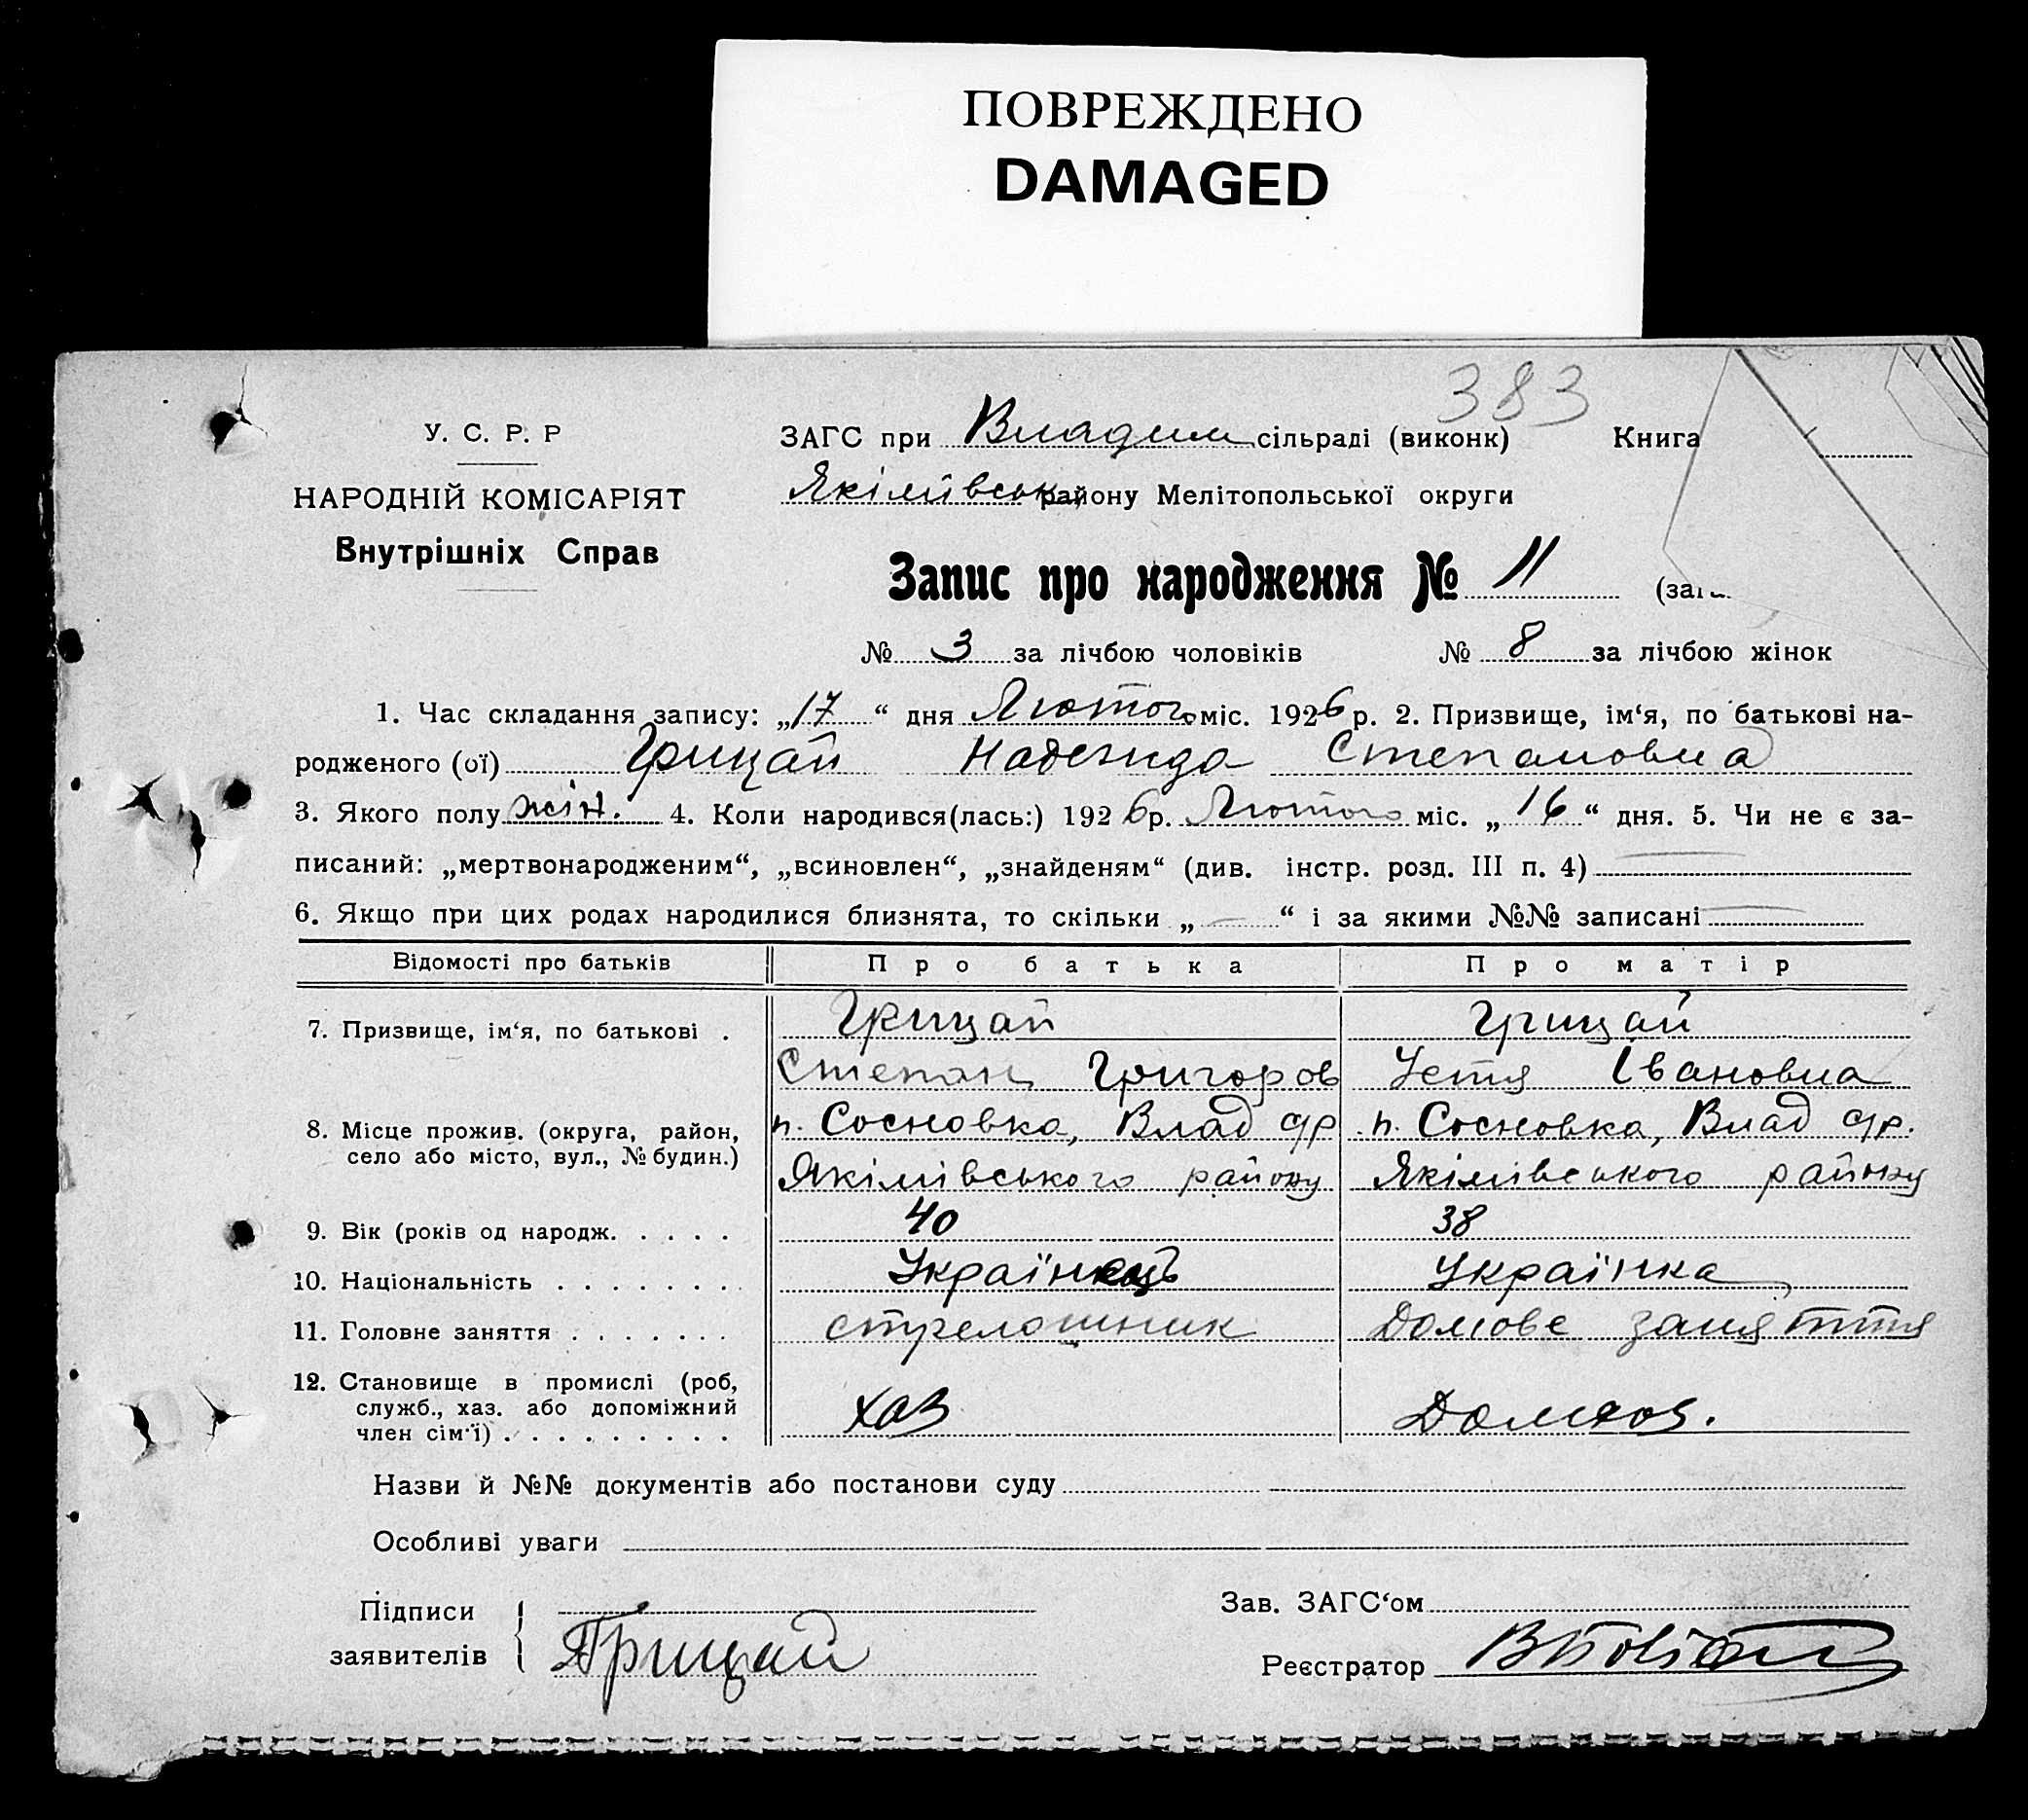 ПОВРЕЖДЕНО
DAMAGED
383
У. С. Р. Р
НАРОДНІЙ КОМІСАРІЯТ
Внутрішніх Справ
ЗАГС при Владим сільраді (виконк) Книга
Якімівськ району Мелітопольської округи
Запис про народження № 11 (заг
№ 3 за лічбою чоловіків № 8 за лічбою жінок
1. Час складання запису: „17“ дня Лютого міс. 1926 р. 2. Призвище, ім‘я, по батькові на-
родженого (ої) Грицай Надежда Степановна
3. Якого полу жін. 4. Коли народився(лась:) 1926 р. Лютого міс. „16“ дня. 5. Чи не є за-
писаний: „мертвонародженим“, „всиновлен“, „знайденям“ (див. інстр. розд. III п. 4)
6. Якщо при цих родах народилися близнята, то скільки „ “ і за якими №№ записані
Відомості про батьків Про батька Про матір
7. Призвище, ім‘я, по батькові . Грицай Грицай
Степан Григоров Устя Івановна
8. Місце прожив. (округа, район, п. Сосновка, Влад с/р п. Сосновка, Влад с/р.
село або місто, вул., № будин.) Якімівського району Якімівського району
9. Вік (років од народж. . . . . 40 38
10. Національність . . . . . . . . Українець Українка
11. Головне заняття . . . . . . . Домове заняття
12. Становище в промислі (роб,
служб., хаз. або допоміжний хаз
член сім‘ї) . . . . . . . . . .
Назви й №№ документів або постанови суду
Особливі уваги
Підписи Зав. ЗАГС‘ом
заявителів Грицай Реєстратор